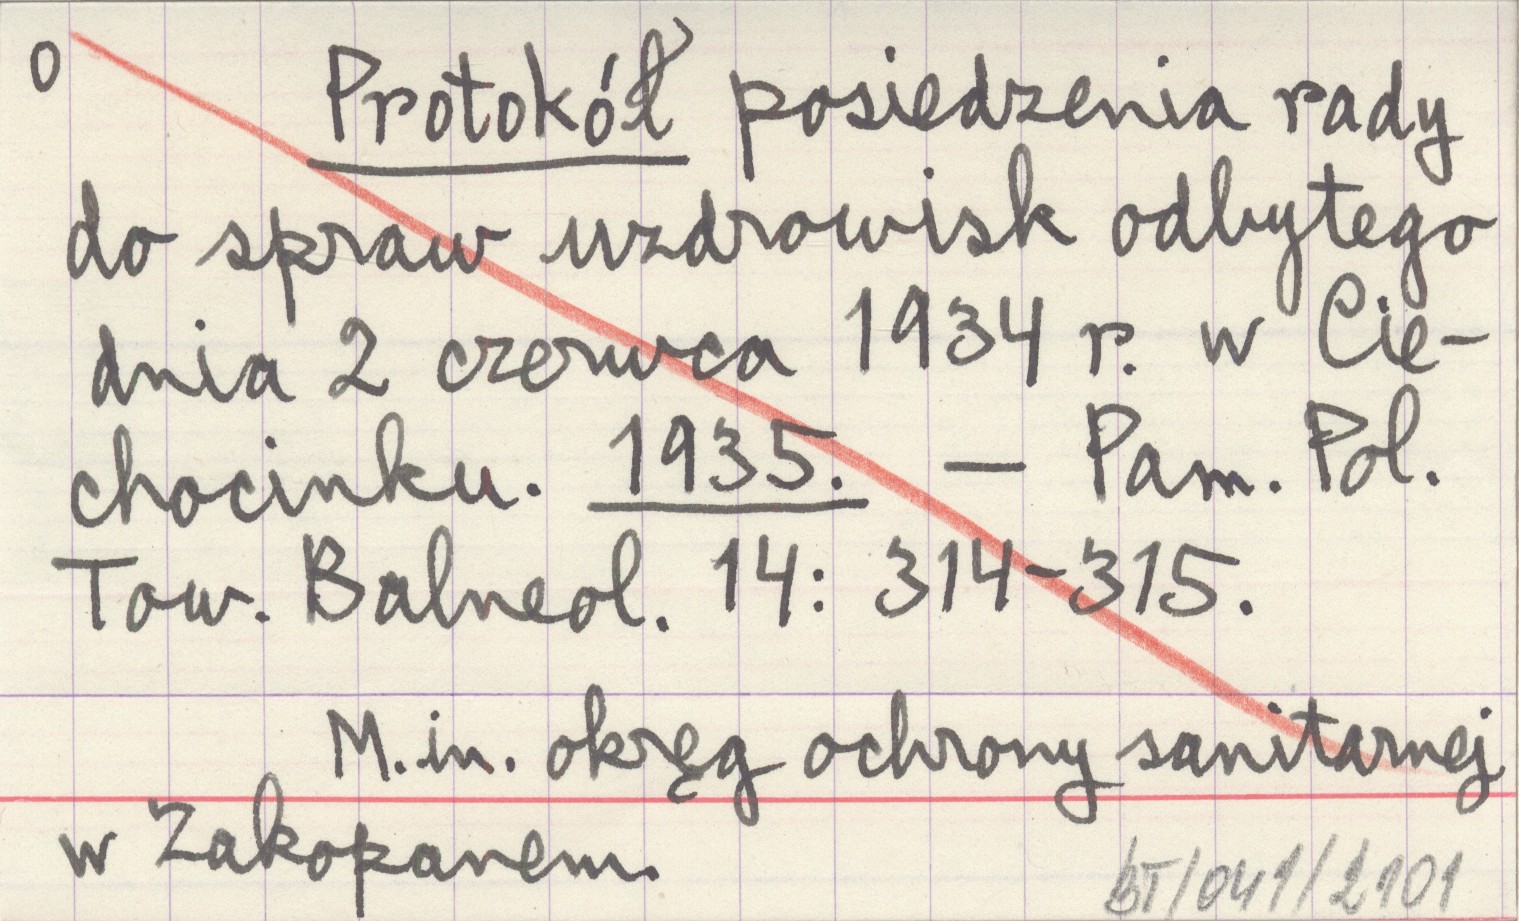 0 Protokół posiedzenia rady
do spraw uzdrowisk odbytego
dnia 2 czerwca 1934 r. w Cie-
chocinku. 1935. — Pam. Pol.
Tow. Balneol. 14: 314-315.
M.in. okręg ochrony sanitarnej
w Zakopanem.
BT/041/2101